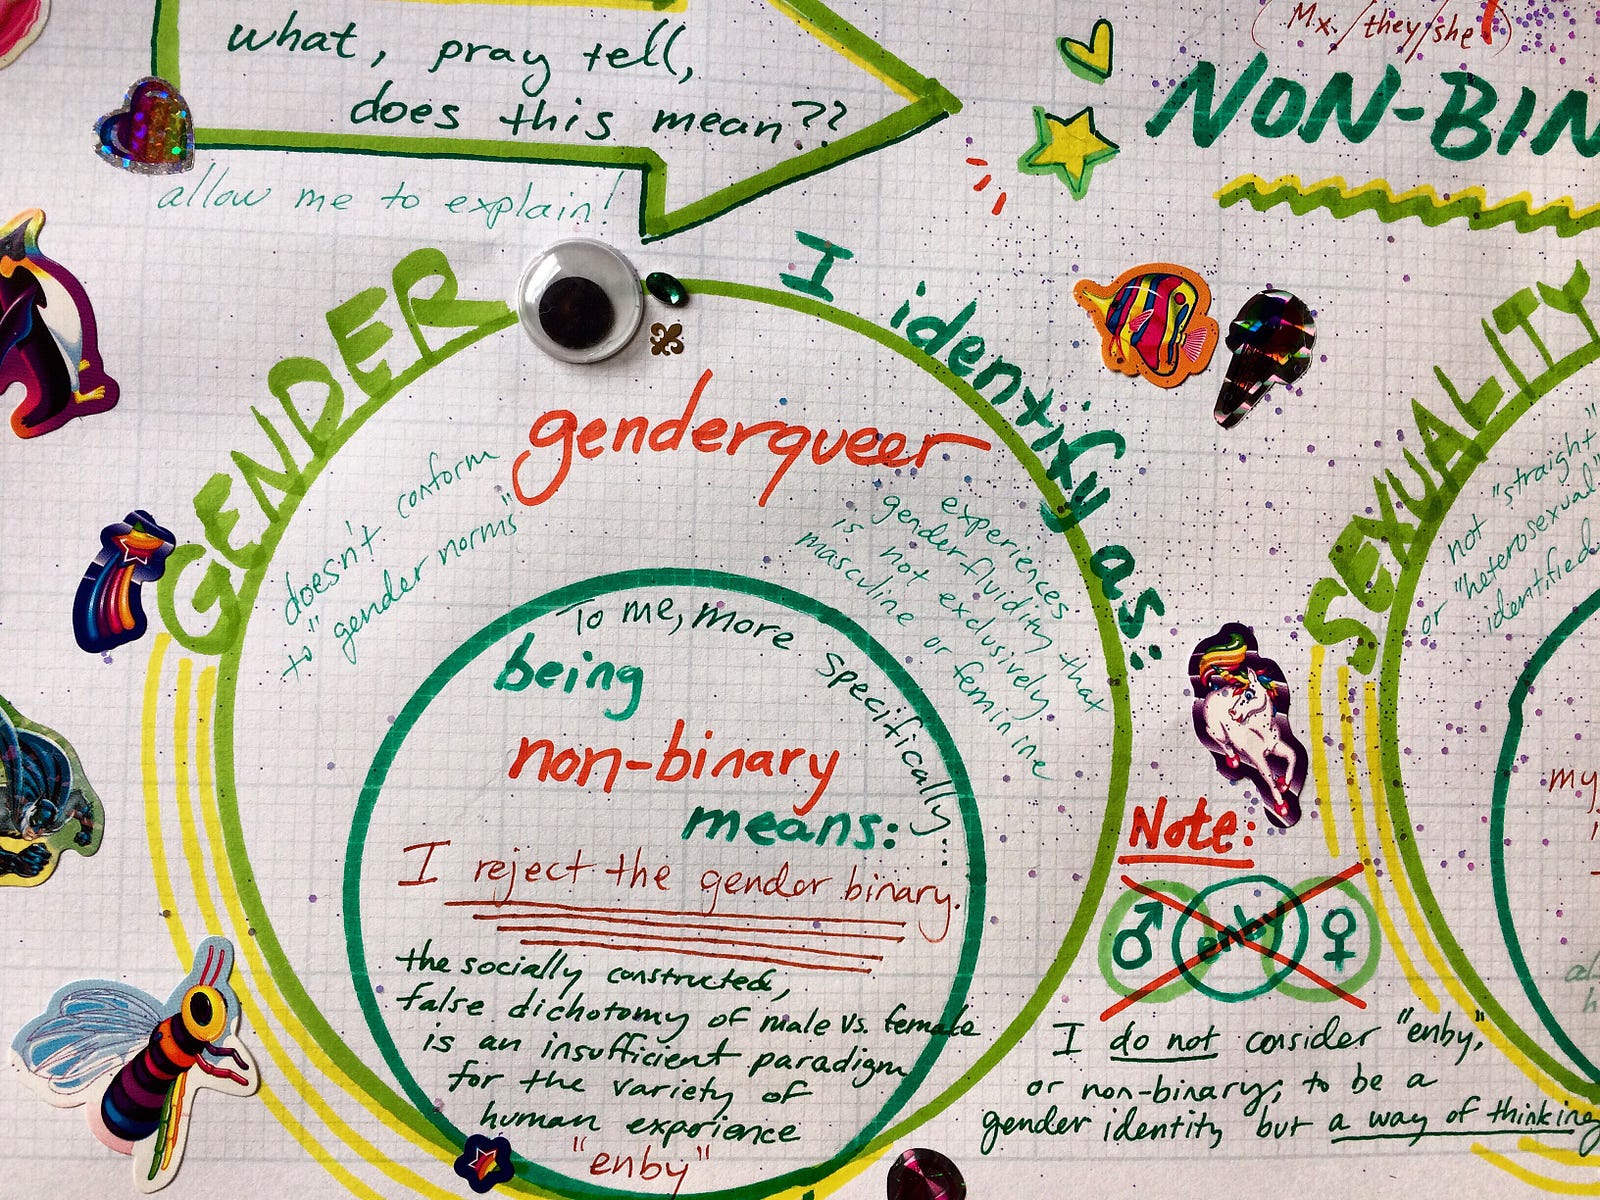 what, pray tell,
does this mean??
allow me to explain!
(Mx./they/she)
NON-BIN
GENDER
I identify as:
genderqueer
doesn't conform
to "gender norms"
experiences
gender fluidity that
is not exclusively
masculine or feminine
To me, more specifically...
being
non-binary
means:
I reject the gender binary.
the socially constructed,
false dichotomy of male vs. female
is an insufficient paradigm
for the variety of
human experience
"enby"
Note:
♂ enby ♀
I do not consider "enby,"
or non-binary, to be a
gender identity but a way of thinking
SEXUALITY
not "straight"
or "heterosexual"
identified
my